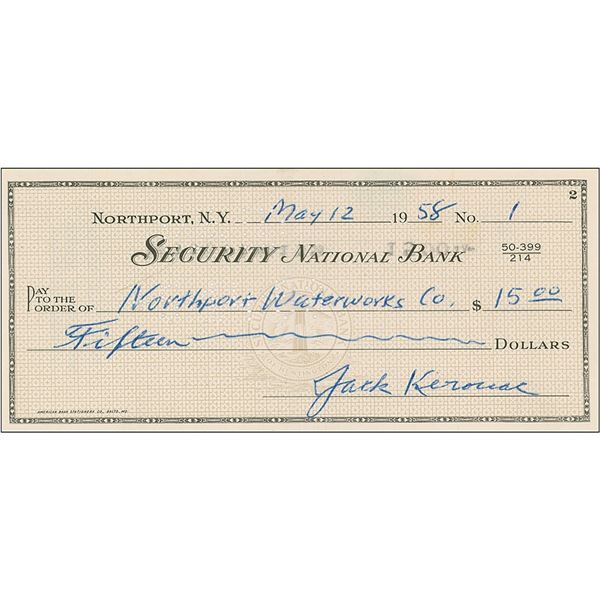 2
NORTHPORT, N.Y. May 12 19 58 NO. 1
SECURITY NATIONAL BANK 50-399/214
PAY TO THE ORDER OF Northport Waterworks Co. $ 15 00
Fifteen DOLLARS
Jack Kerouac
AMERICAN BANK STATIONERY CO., BALTO., MD.